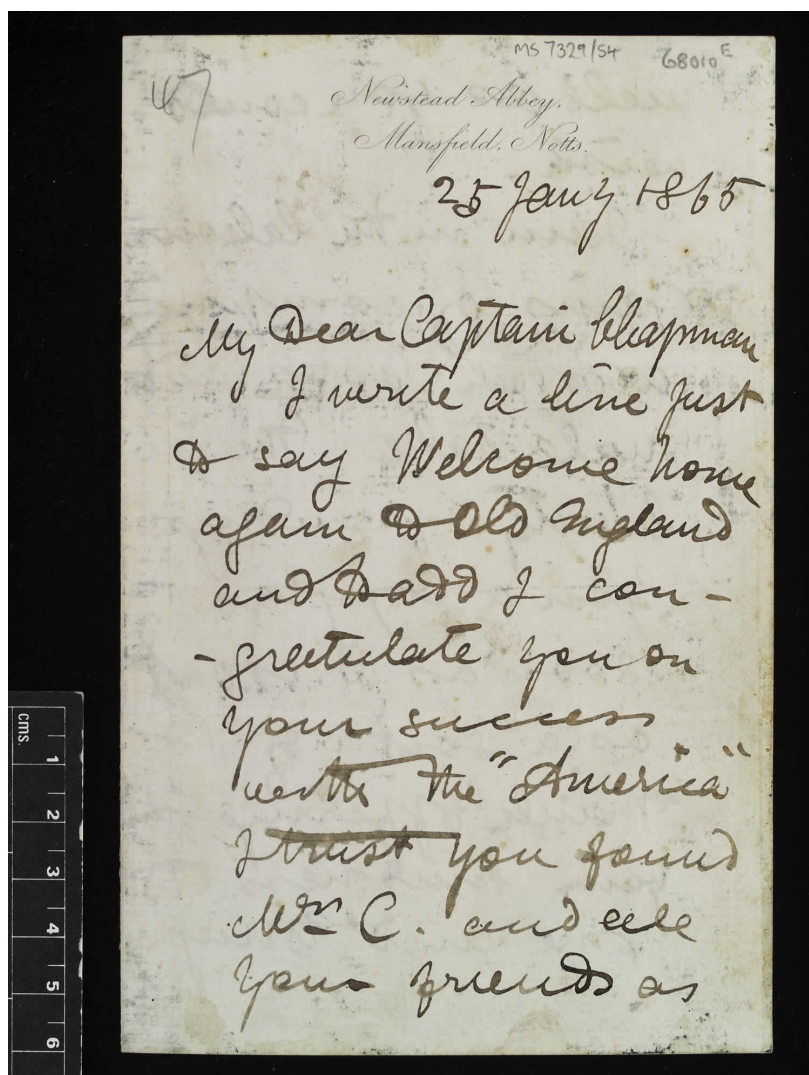 MS 7329/54
68010 E
47
Newstead Abbey.
Mansfield. Notts.
25 Jany 1865
My Dear Captain Chapman
I write a line just
to say Welcome home
again to Old England
and to add I con-
-gratulate you on
your success
with the "America"
I trust you found
Mrs C. and all
your friends as
cms.
1
2
3
4
5
6